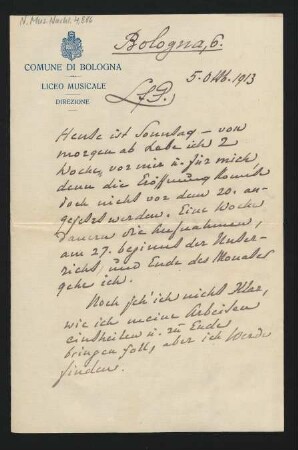 N. Mus. Nachl. 4,886
Bologna, 6.
COMUNE DI BOLOGNA
LICEO MUSICALE
DIREZIONE
5. Okt. 1913
L. G.
Heute ist Sonntag – von
morgen ab habe ich 2
Wochen vor mir u. für mich
denn die Eröffnung konnte
doch nicht vor dem 20. an-
gesetzt werden. Eine Woche
dauern die Aufnahmen,
am 27. beginnt der Unter-
richt, und Ende des Monates
gehe ich.
Noch seh' ich nicht klar,
wie ich meine Arbeiten
eintheilen u. zu Ende
bringen soll, aber ich werde
finden.